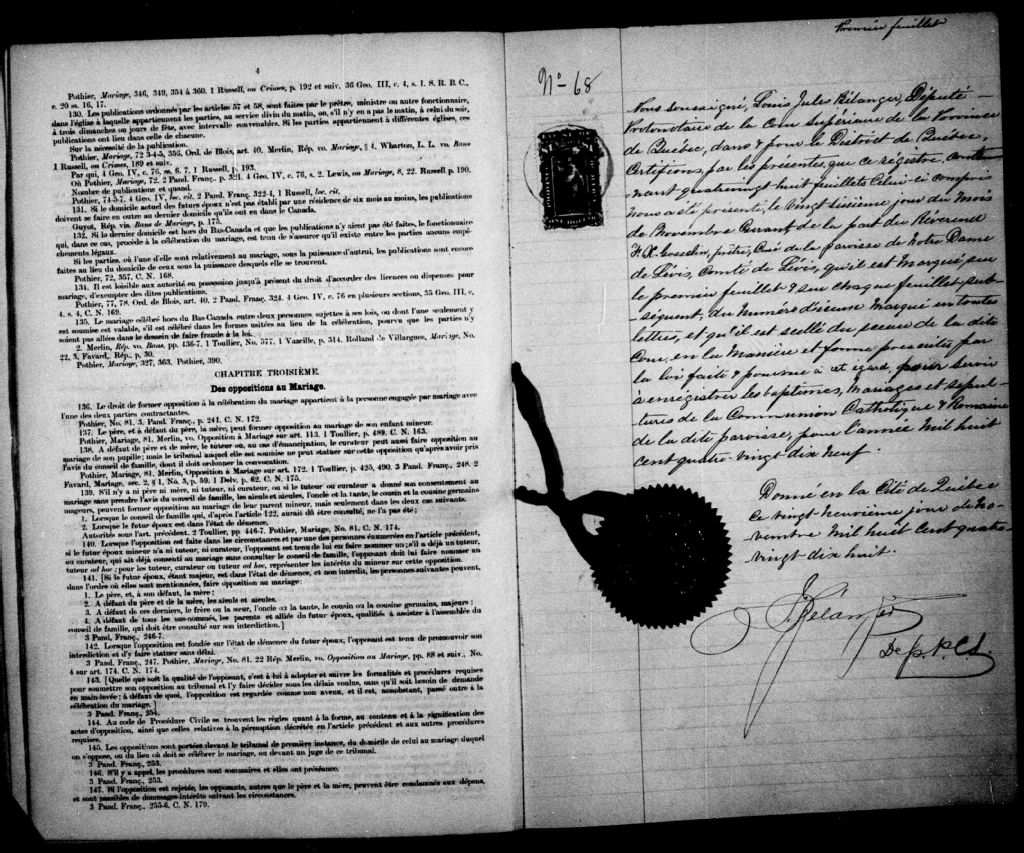 4
Pothier, Mariage, 346, 349, 354 à 360. 1 Russell, on Crimes, p. 192 et suiv. 36 Geo. III, c. 4, s. 1. S. R. B. C.,
c. 20 ss. 16, 17.
130. Les publications ordonnées par les articles 57 et 58, sont faites par le prêtre, ministre ou autre fonctionnaire,
dans l'église à laquelle appartiennent les parties, au service divin du matin, ou, s'il n'y en a pas le matin, à celui du soir,
à trois dimanches ou jours de fête, avec intervalle convenables. Si les parties appartiennent à différentes églises, ces
publications ont lieu dans celle de chacune.
Sur la nécessité de la publication.
Pothier, Mariage, 72 3-4-5, 356, Ord. de Blois, art. 40. Merlin, Rép. vo. Mariage, § 4. Wharton, L. L. vo. Bans
1 Russell, on Crimes, 189 et suiv.
Par qui, 4 Geo. IV, c. 76, ss. 6. 7. 1 Russell, p. 193.
Où Pothier, Mariage, 72. 2 Pand. Franç. p. 321, 4 Geo. IV, c. 76, s. 2. Lewis, on Mariage, 8, 22. Russell p. 190.
Nombre de publications et quand.
Pothier, 74-5-7. 4 Geo. IV, loc. cit. 2 Pand. Franç. 322-4, 1 Russell, loc. cit.
131. Si le domicile actuel des futurs époux n'est pas établi par une résidence de six mois au moins, les publications
doivent se faire en outre au dernier domicile qu'ils ont eu dans le Canada.
Guyot, Rép. vis. Bans de Mariage, p. 175.
132. Si le dernier domicile est hors du Bas-Canada et que les publications n'y aient pas été faites, le fonctionnaire
qui, dans ce cas, procède à la célébration du mariage, est tenu de s'assurer qu'il existe entre les parties aucuns empê-
chements légaux.
Si les parties, où l'une d'elle sont relativement au mariage, sous la puissance d'autrui, les publications sont encore
faites au lieu du domicile de ceux sous la puissance desquels elle se trouvent.
Pothier, 72, 357. C. N. 168.
134. Il est loisible aux autorité en possession jusqu'à présent du droit d'accorder des licences ou dispenses pour
mariage, d'exempter des dites publications.
Pothier, 77, 78. Ord. de Blois, art. 40. 2 Pand. Franç. 324. 4 Geo. IV, c. 76 en plusieurs sections, 35 Geo. III, c.
4. s. 4, C. N. 169.
135. Le mariage célébré hors du Bas-Canada entre deux personnes sujettes à ses lois, ou dont l'une seulement y
est soumise est valable, s'il est célébré dans les formes usitées au lieu de la célébration, pourvu que les parties n'y
soient pas allées dans le dessein de faire fraude à la loi.
2. Merlin, Rép. vo. Bans, pp. 436-7, 1 Toullier, No. 577, 1 Vazeille, p. 314. Rolland de Villargues, Mariage, No.
22, 3, Favard, Rép., p. 30.
Pothier, Mariage, 327, 363. Pothier, 390.
CHAPITRE TROISIÈME.
Des oppositions au Mariage.
136. Le droit de former opposition à la célébration du mariage appartient à la personne engagée par mariage avec
l'une des deux parties contractantes.
Pothier, No. 81, 3. Pand. Franç., p. 241. C. N. 172.
137. Le père, et à défaut du père, la mère, peut former opposition au mariage de son enfant mineur.
Pothier, Mariage, 81. Merlin, vo. Opposition à Mariage sur art. 113. 1 Toullier, p. 489. C. N. 163.
138. A défaut de père et de mère, le tuteur ou, au cas d'émancipation, le curateur peut aussi faire opposition au
mariage de son pupille ; mais le tribunal auquel elle est soumise ne peut statuer sur cette opposition qu'après avoir pris
l'avis du conseil de famille, dont il doit ordonner la convocation.
Pothier, Mariage, 81, Merlin, Opposition à Mariage sur art. 172. 1 Toullier, p. 425, 490. 3 Pand. Franç., 248. 2
Favard, Mariage, sec. 2, § 1, No. 3, p. 59. 1 Delv. p. 62. C. N. 175.
139. S'il n'y a ni père ni mère, ni tuteur, ni curateur, ou si le tuteur ou curateur a donné son consentement au
mariage sans prendre l'avis du conseil de famille, les aïeuls et aïeules, l'oncle et la tante, le cousin et la cousine germains
mageurs, peuvent former opposition au mariage de leur parent mineur, mais seulement dans les deux cas suivants.
1. Lorsque le conseil de famille qui, d'après l'article 122, aurait dû être consulté, ne l'a pas été ;
2. Lorsque le futur époux est dans l'état de démence.
Autorités sous l'art. précédent. 2 Toullier, pp 446-7. Pothier, Mariage, No. 81. C. N. 174.
140. Lorsque l'opposition est faite dans les circonstances et par une des personnes énumérées en l'article précédent,
si le futur époux mineur n'a ni tuteur, ni curateur, l'opposant est tenu de lui en faire nommer un ; s'il a déjà un tuteur,
ou curateur, qui ait déjà consenti au mariage sans consulter le conseil de famille, l'opposant doit lui faire nommer un
tuteur ad hoc ; pour les tuteur, curateur ou tuteur ad hoc, représenter les intérêts du mineur sur cette opposition.
141. [Si le futur époux, étant majeur, est dans l'état de démence, et non interdit, les personnes suivantes peuvent,
dans l'ordre où elles sont mentionnées, faire opposition au mariage :
1. Le père, et, à son défaut, la mère ;
2. A défaut du père et de la mère, les aïeuls et aïeules.
3. A défaut de ces derniers, le frère ou la sœur, l'oncle ou la tante, le cousin ou la cousine germains, majeurs ;
4. A défaut de tous les sus-nommés, les parents et alliés du futur époux, qualifiés à assister à l'assemblée du
conseil de famille, qui doit être consulté sur son interdiction.]
3 Pand. Franç., 246-7.
142. Lorsque l'opposition est fondée sur l'état de démence du futur époux, l'opposant est tenu de promouvoir son
interdiction et d'y faire statuer sans délai.
3 Pand. Franç., 247. Pothier, Mariage, No. 81. 22 Rép. Merlin, vo. Opposition au Mariage, pp. 88 et suiv., No.
4 sur art. 174. C. N. 174.
143. [Quelle que soit la qualité de l'opposant, c'est à lui à adopter et suivre les formalités et procédures requises
pour soumettre son opposition au tribunal et l'y faire décider sous les délais voulus, sans qu'il soit besoin de demande
en main-levée ; à défaut de quoi, l'opposition est regardée comme non avenu, et il est, nonobstant, passé outre à la
célébration du mariage.]
3 Pand. Franç., 254.
144. Au code de Procédure Civile se trouvent les règles quant à la forme, au contenu et à la signification des
actes d'opposition, ainsi que celles relatives à la péremption décrétée en l'article précédent et aux autres procédures
requises.
145. Les oppositions sont portées devant le tribunal de première instance, du domicile de celui au mariage duquel
on s'oppose, ou du lieu où doit se célébrer le mariage, ou devant un juge de ce tribunal.
3 Pand. Franç., 253.
146. S'il y a appel, les procédures sont sommaires et elles ont préséance.
3 Pand. Franç., 253.
147. Si l'opposition est rejetée, les opposants, autres que le père et la mère, peuvent être condamnés aux dépens,
et sont passibles de dommages-intérêts suivant les circonstances.
3 Pand. Franç., 255-6. C. N. 179.
Premier feuillet
No 68
Nous soussigné, Louis Jules Bélanger, Député
Protonotaire de la Cour Supérieure de la Province
de Québec, dans & pour le District de Québec,
Certifions, par les présentes, que ce registre, conte
nant quatrevingt huit feuillets celui-ci compris
nous a été présenté, le vingt sixième jour du mois
de Novembre Courant de la part du Révérend
F. X. Gosselin, prêtre, Curé de la paroisse de Notre Dame
de Lévis, Comté de Lévis, qu'il est marqué, sur
le premier feuillet & sur chaque feuillet sub-
séquent, du numéro d'iceux marqué en toutes
lettres, et qu'il est scellé du sceau de la dite
Cour, en la manière et forme prescrites par
la loi faite & pourvue à cet égard, pour servir
à enregistrer les baptêmes, mariages et sépul-
tures de la Communion Catholique & Romaine
de la dite paroisse, pour l'année mil huit
cent quatre-vingt dix neuf.
Donné en la Cité de Québec
ce vingt-neuvième jour de No-
vembre mil huit cent quatre-
vingt-dix huit.
J. Bélanger
Dep. P. C. S.